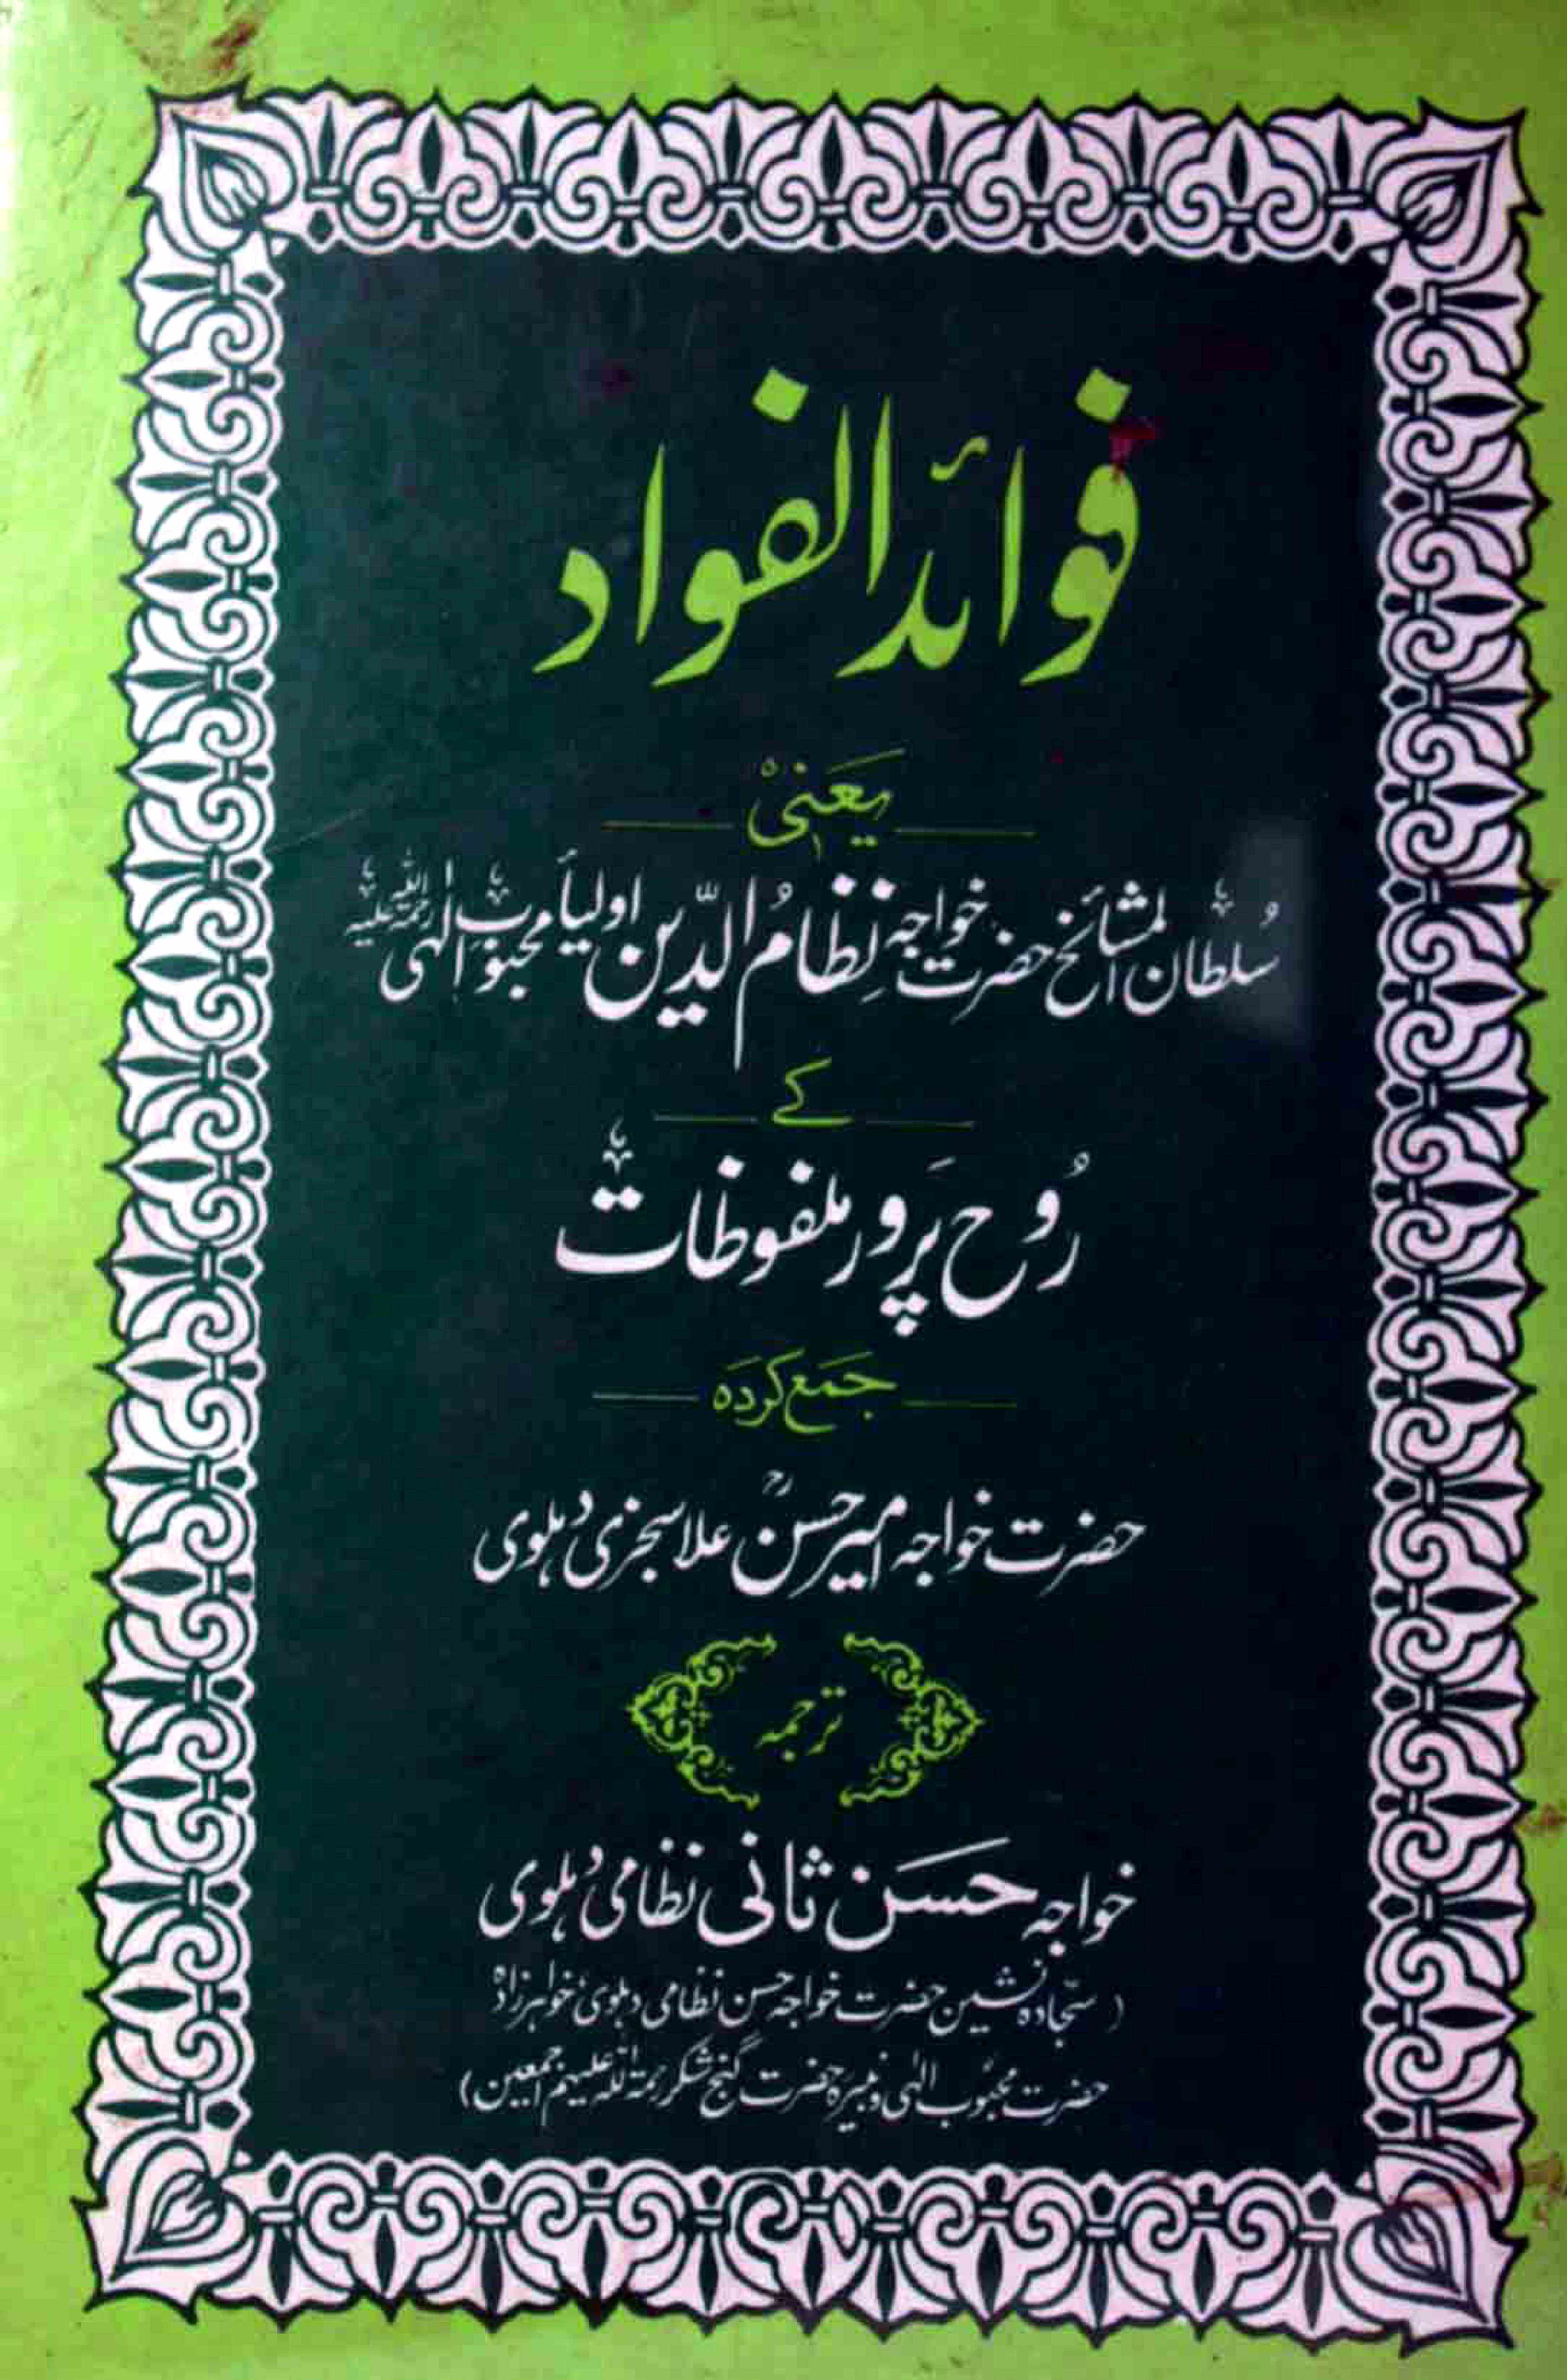 فوائد الفواد
یَعَنیْ
سُلطان المشائخ حضرت خواجہ نِظامُ الدّین اولیأ محبوبِ الٰہی رحمۃ اللہ علیہ
کے
رُوح پَرور ملفوظات
جَمَع کردَہ
حضرت خواجہ امیر حسنؒ علا سجزی دہلوی
ترجمہ
خواجہ حسَن ثانی نظامی دہلوی
(سجّادہ نشین حضرت خواجہ حسن نظامی دہلوی، خواہرزادۂ
حضرت محبوب الٰہی و نبیرۂ حضرت گنج شکر رحمۃ اللہ علیہم اجمعین)